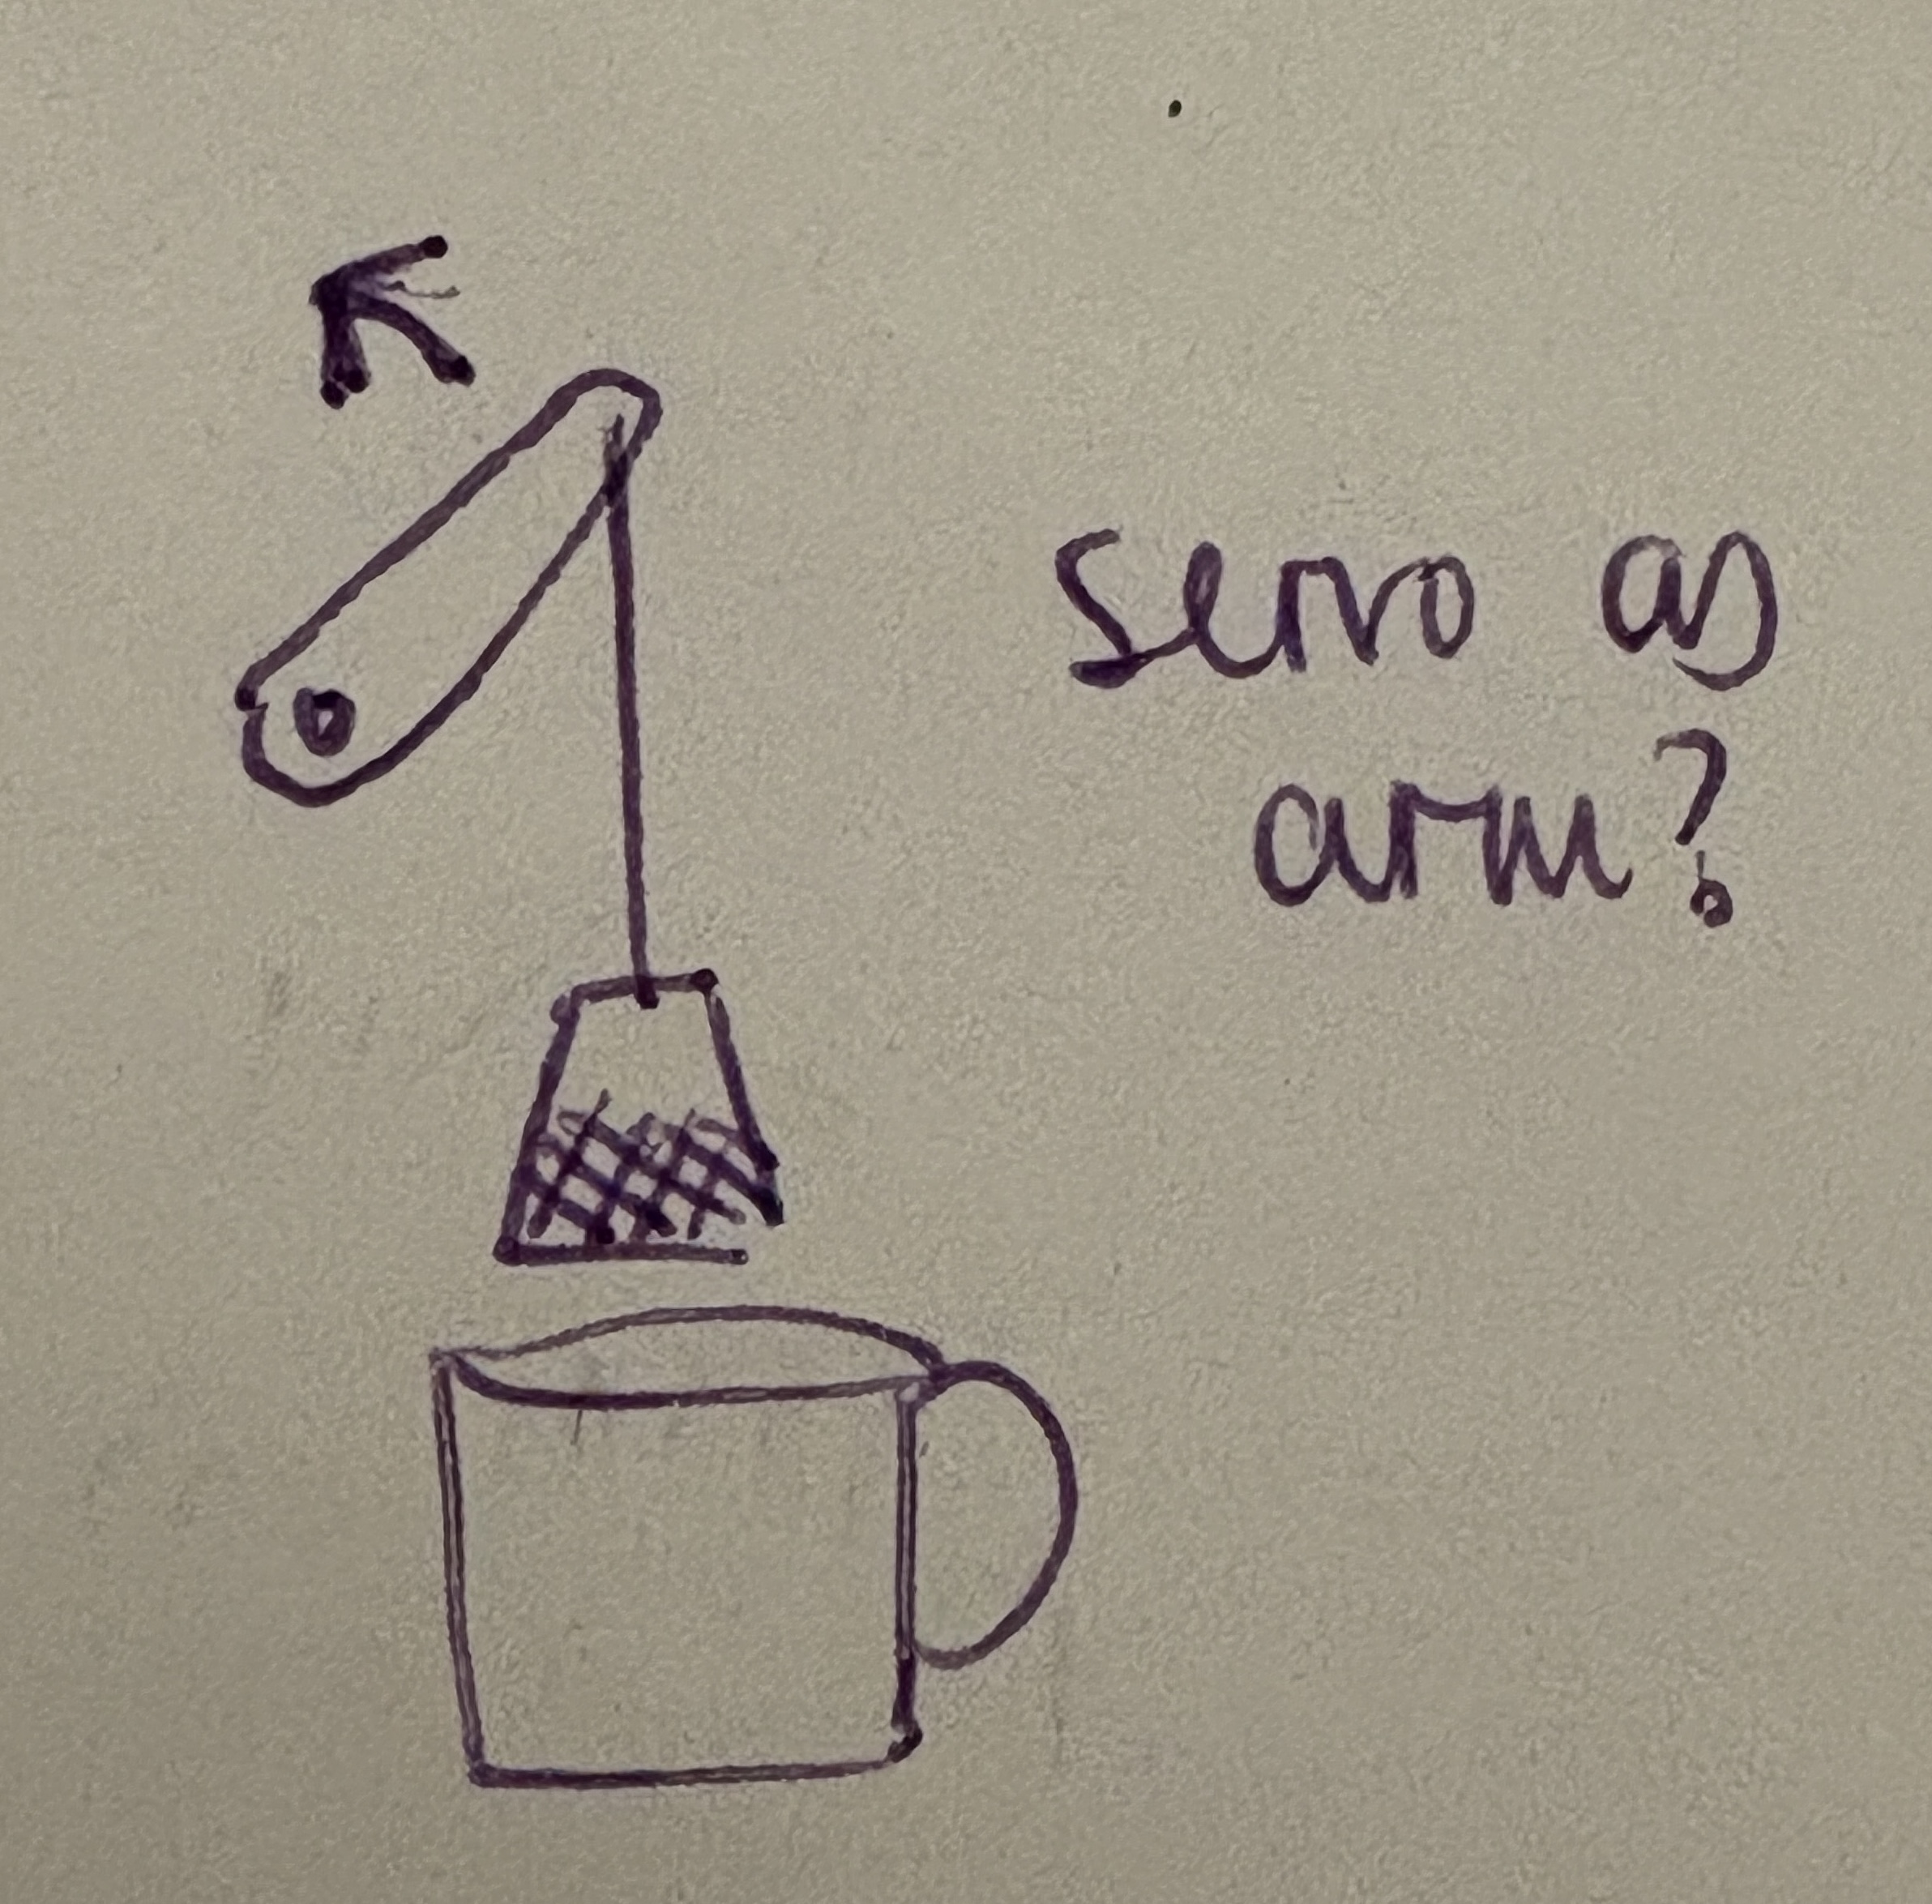 servo as
arm?